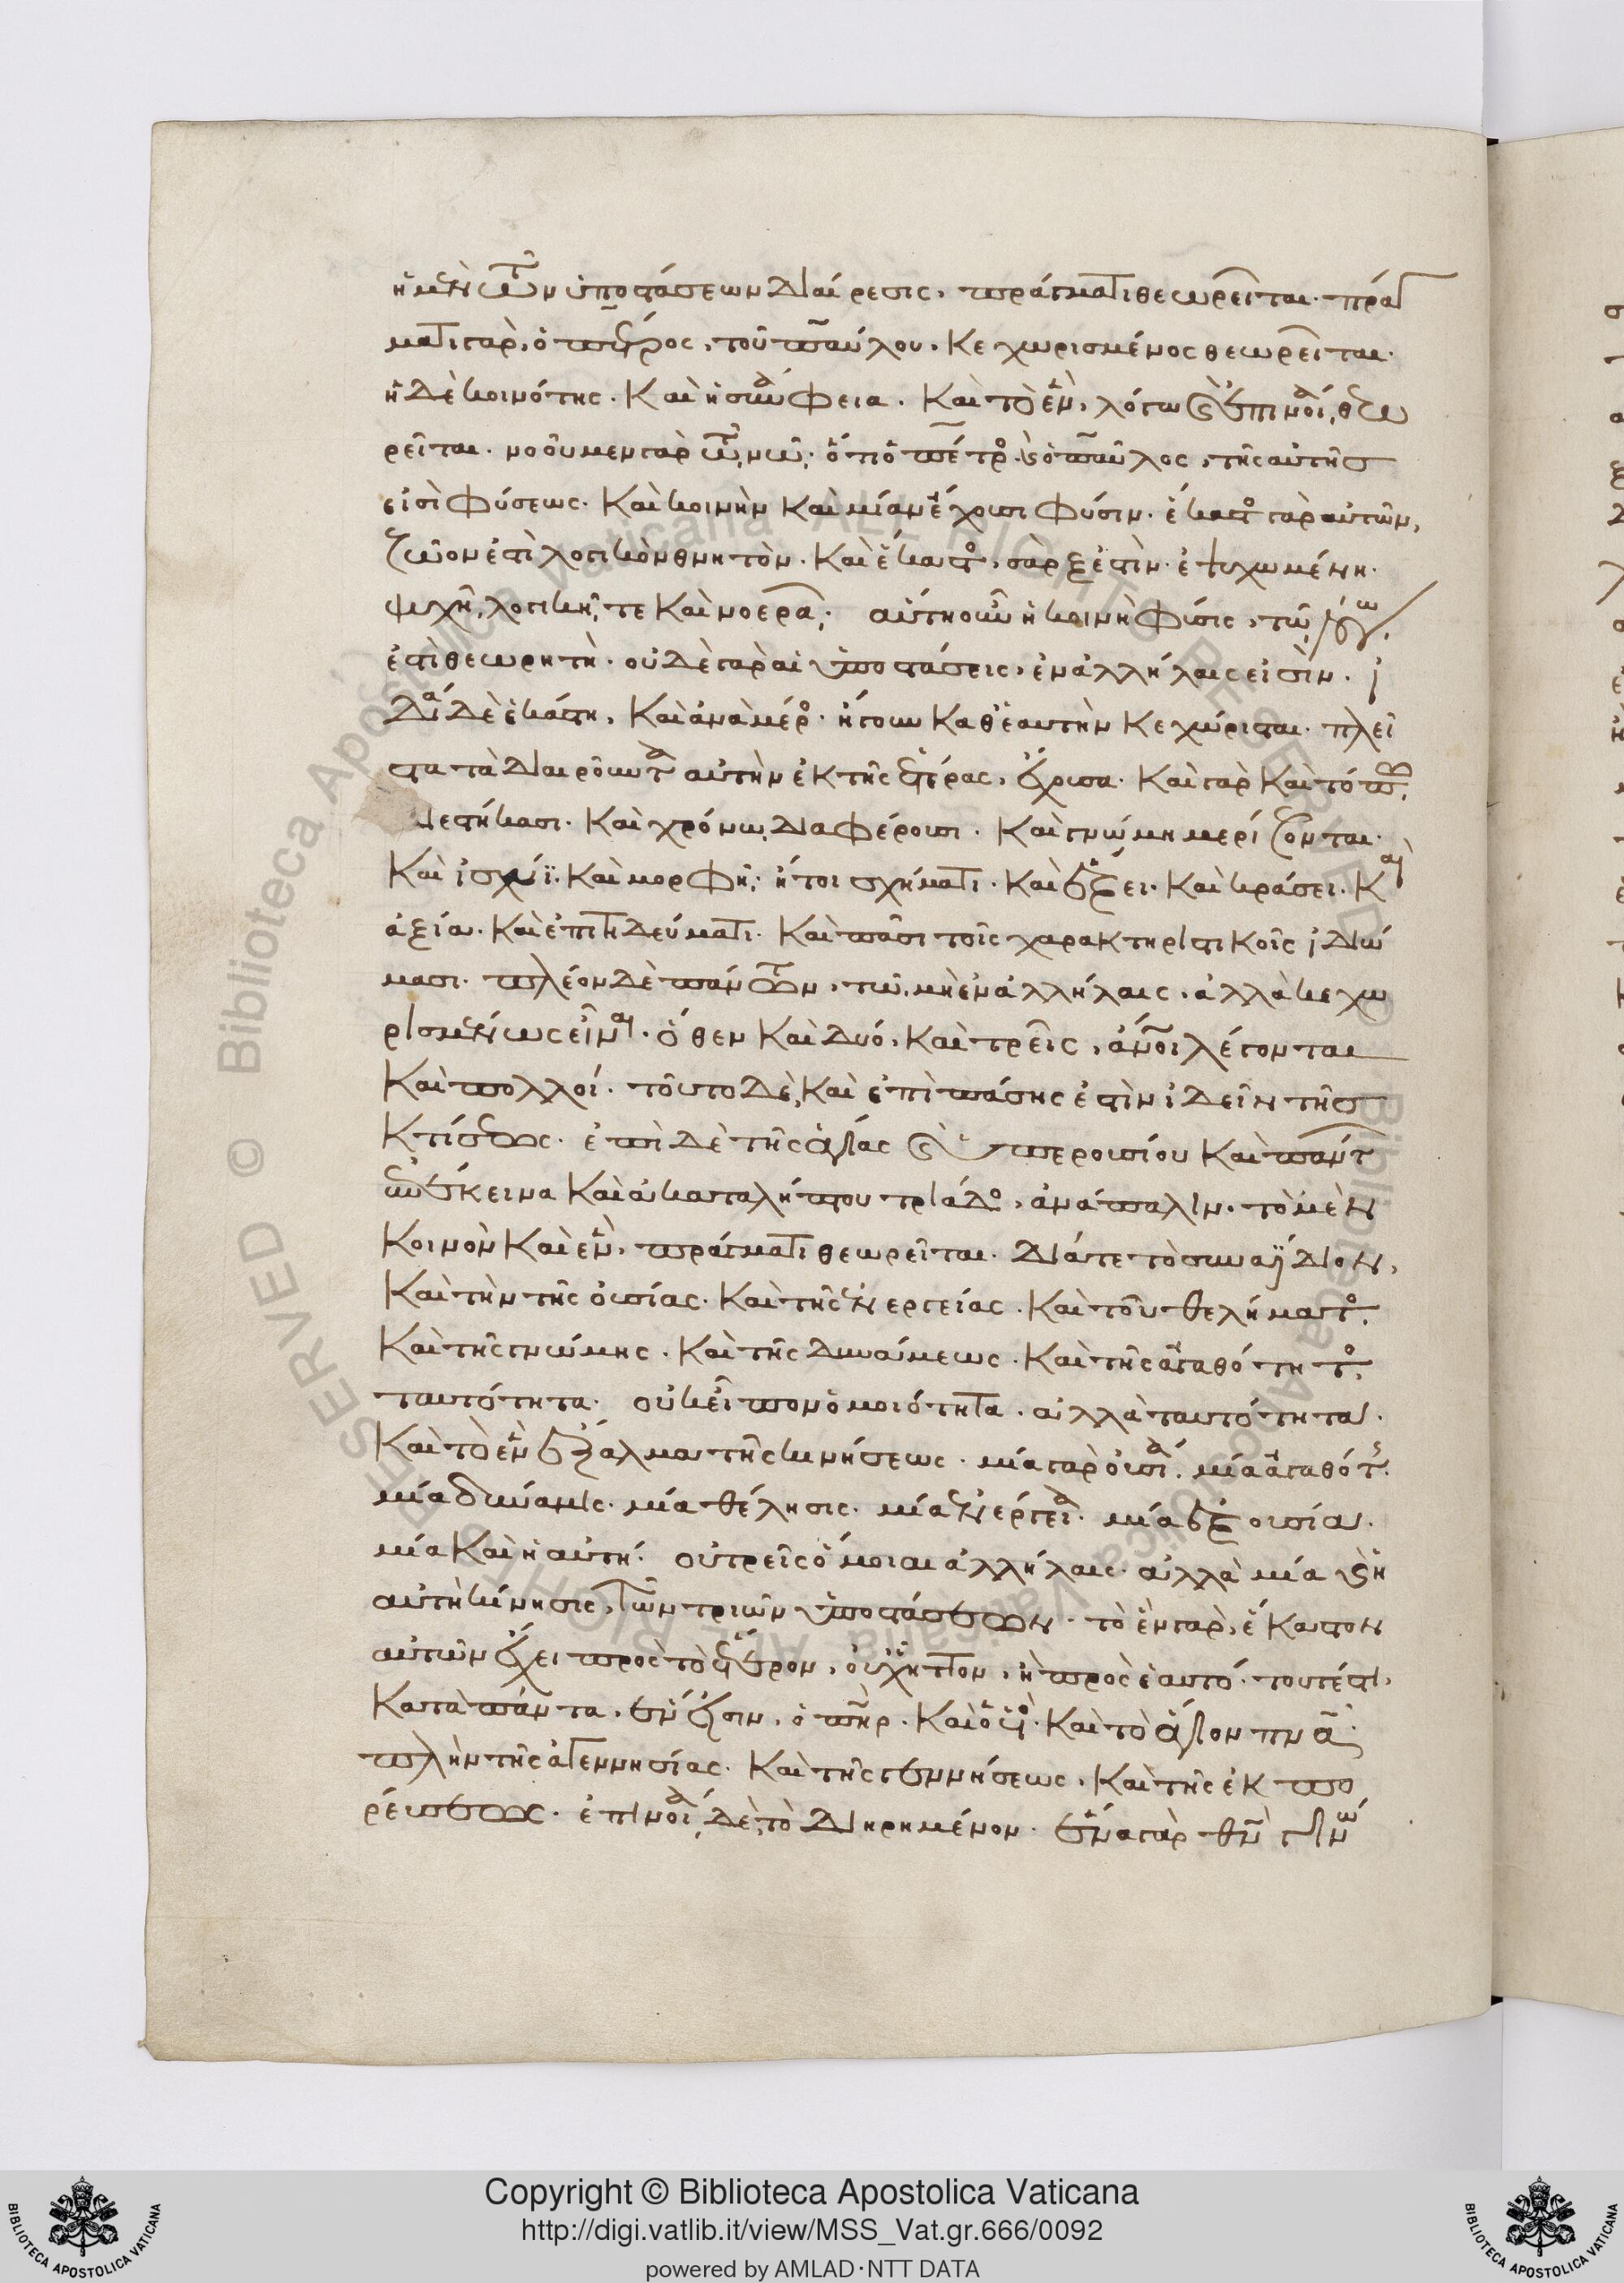 ἡ μὲν τῶν ὑποστάσεων διαίρεσις, πράγματι θεωρεῖται. πράγ
ματι γὰρ, ὁ πέτρος, τοῦ παύλου, κεχωρισμένος θεωρεῖται.
ἡ δὲ κοινότης. καὶ ἡ συνάφεια. καὶ τὸ ἓν, λόγω καὶ ἐπινοία, θεω
ρεῖται. νοοῦμεν γὰρ τῶ νῶ, ὅτι ὁ πέτρος καὶ ὁ παῦλος, τῆς αὐτῆς
εἰσὶ φύσεως. καὶ κοινὴν καὶ μίαν ἔχουσι φύσιν. ἕκαστος γὰρ αὐτῶν,
ζῶον ἐστὶ λογικὸν θνητὸν. καὶ ἕκαστος, σὰρξ ἐστὶν. ἐψυχωμένη.
ψυχῆ, λογικῆ, τε καὶ νοερᾶ, αὕτη οὖν ἡ κοινὴ φύσις, τῶ λόγω,
ἐστὶ θεωρητὴ. οὐδὲ γὰρ αἱ ὑποστάσεις, ἐν ἀλλήλαις εἰσὶν. ἰ
δία δὲ ἑκάστη, καὶ ἀναμέρος. ἤγουν καθ' ἑαυτὴν κεχώρισται. πλεῖ
στα τὰ διαιροῦντα αὐτὴν ἐκ τῆς ἑτέρας, ἔχουσα. καὶ γὰρ καὶ τόπω,
διεστήκασι. καὶ χρόνω, διαφέρουσι. καὶ γνώμη μερίζονται.
καὶ ἰσχύϊ. καὶ μορφῆ, ἤτοι σχήματι. καὶ ἕξει. καὶ κράσει. καὶ
ἀξία. καὶ ἐπιτηδεύματι. καὶ πᾶσι τοῖς χαρακτηριστικοῖς ἰδιώ
μασι. πλέον δὲ πάντων, τῶ, μὴ ἐν ἀλλήλαις, ἀλλὰ κεχω
ρισμένως εἶναι. ὅθεν καὶ δύο, καὶ τρεῖς, ἄνοι λέγονται
καὶ πολλοί. τοῦτο δὲ, καὶ ἐπὶ πάσης ἐστὶν ἰδεῖν τῆς
κτίσεως. ἐπὶ δὲ τῆς ἁγίας καὶ ὑπερουσίου καὶ πάντ
ων ἐπέκεινα καὶ ἀκαταλήπτου τριάδος, ἀνάπαλιν. τὸ μὲν
κοινὸν καὶ ἓν, πράγματι θεωρεῖται. διά τε τὸ συναΐδιον,
καὶ τὴν τῆς οὐσίας. καὶ τῆς ἐνεργείας. καὶ τοῦ θελήματος,
καὶ τῆς γνώμης. καὶ τῆς δυνάμεως. καὶ τῆς ἀγαθότητος,
ταυτότητα. οὐκ εἶπον ὁμοιότητα. ἀλλὰ ταυτότητα.
καὶ τὸ ἓν ἔξαλμα τῆς κινήσεως. μία γὰρ οὐσία. μία ἀγαθότης.
μία δύναμις. μία θέλησις. μία ἐνέργεια. μία ἐξουσία.
μία καὶ ἡ αὐτή. οὐ τρεῖς ὅμοιαι ἀλλήλαις. ἀλλὰ μία καὶ ἡ
αὐτὴ κίνησις, τῶν τριῶν ὑποστάσεων. τὸ ἓν γὰρ, ἕκαστον
αὐτῶν ἔχει πρὸς τὸ ἕτερον, οὐχ ἧττον, ἢ πρὸς ἑαυτό. τουτέστι,
κατὰ πάντα, ἕν εἰσιν, ὁ πηρ. καὶ ὁ υἱὸς. καὶ τὸ ἅγιον πνα.
πλὴν τῆς ἀγεννησίας. καὶ τῆς γεννήσεως, καὶ τῆς ἐκπο
ρεύσεως. ἐπινοία, δὲ, τὸ διηρημένον. ἕνα γὰρ θν γινώ